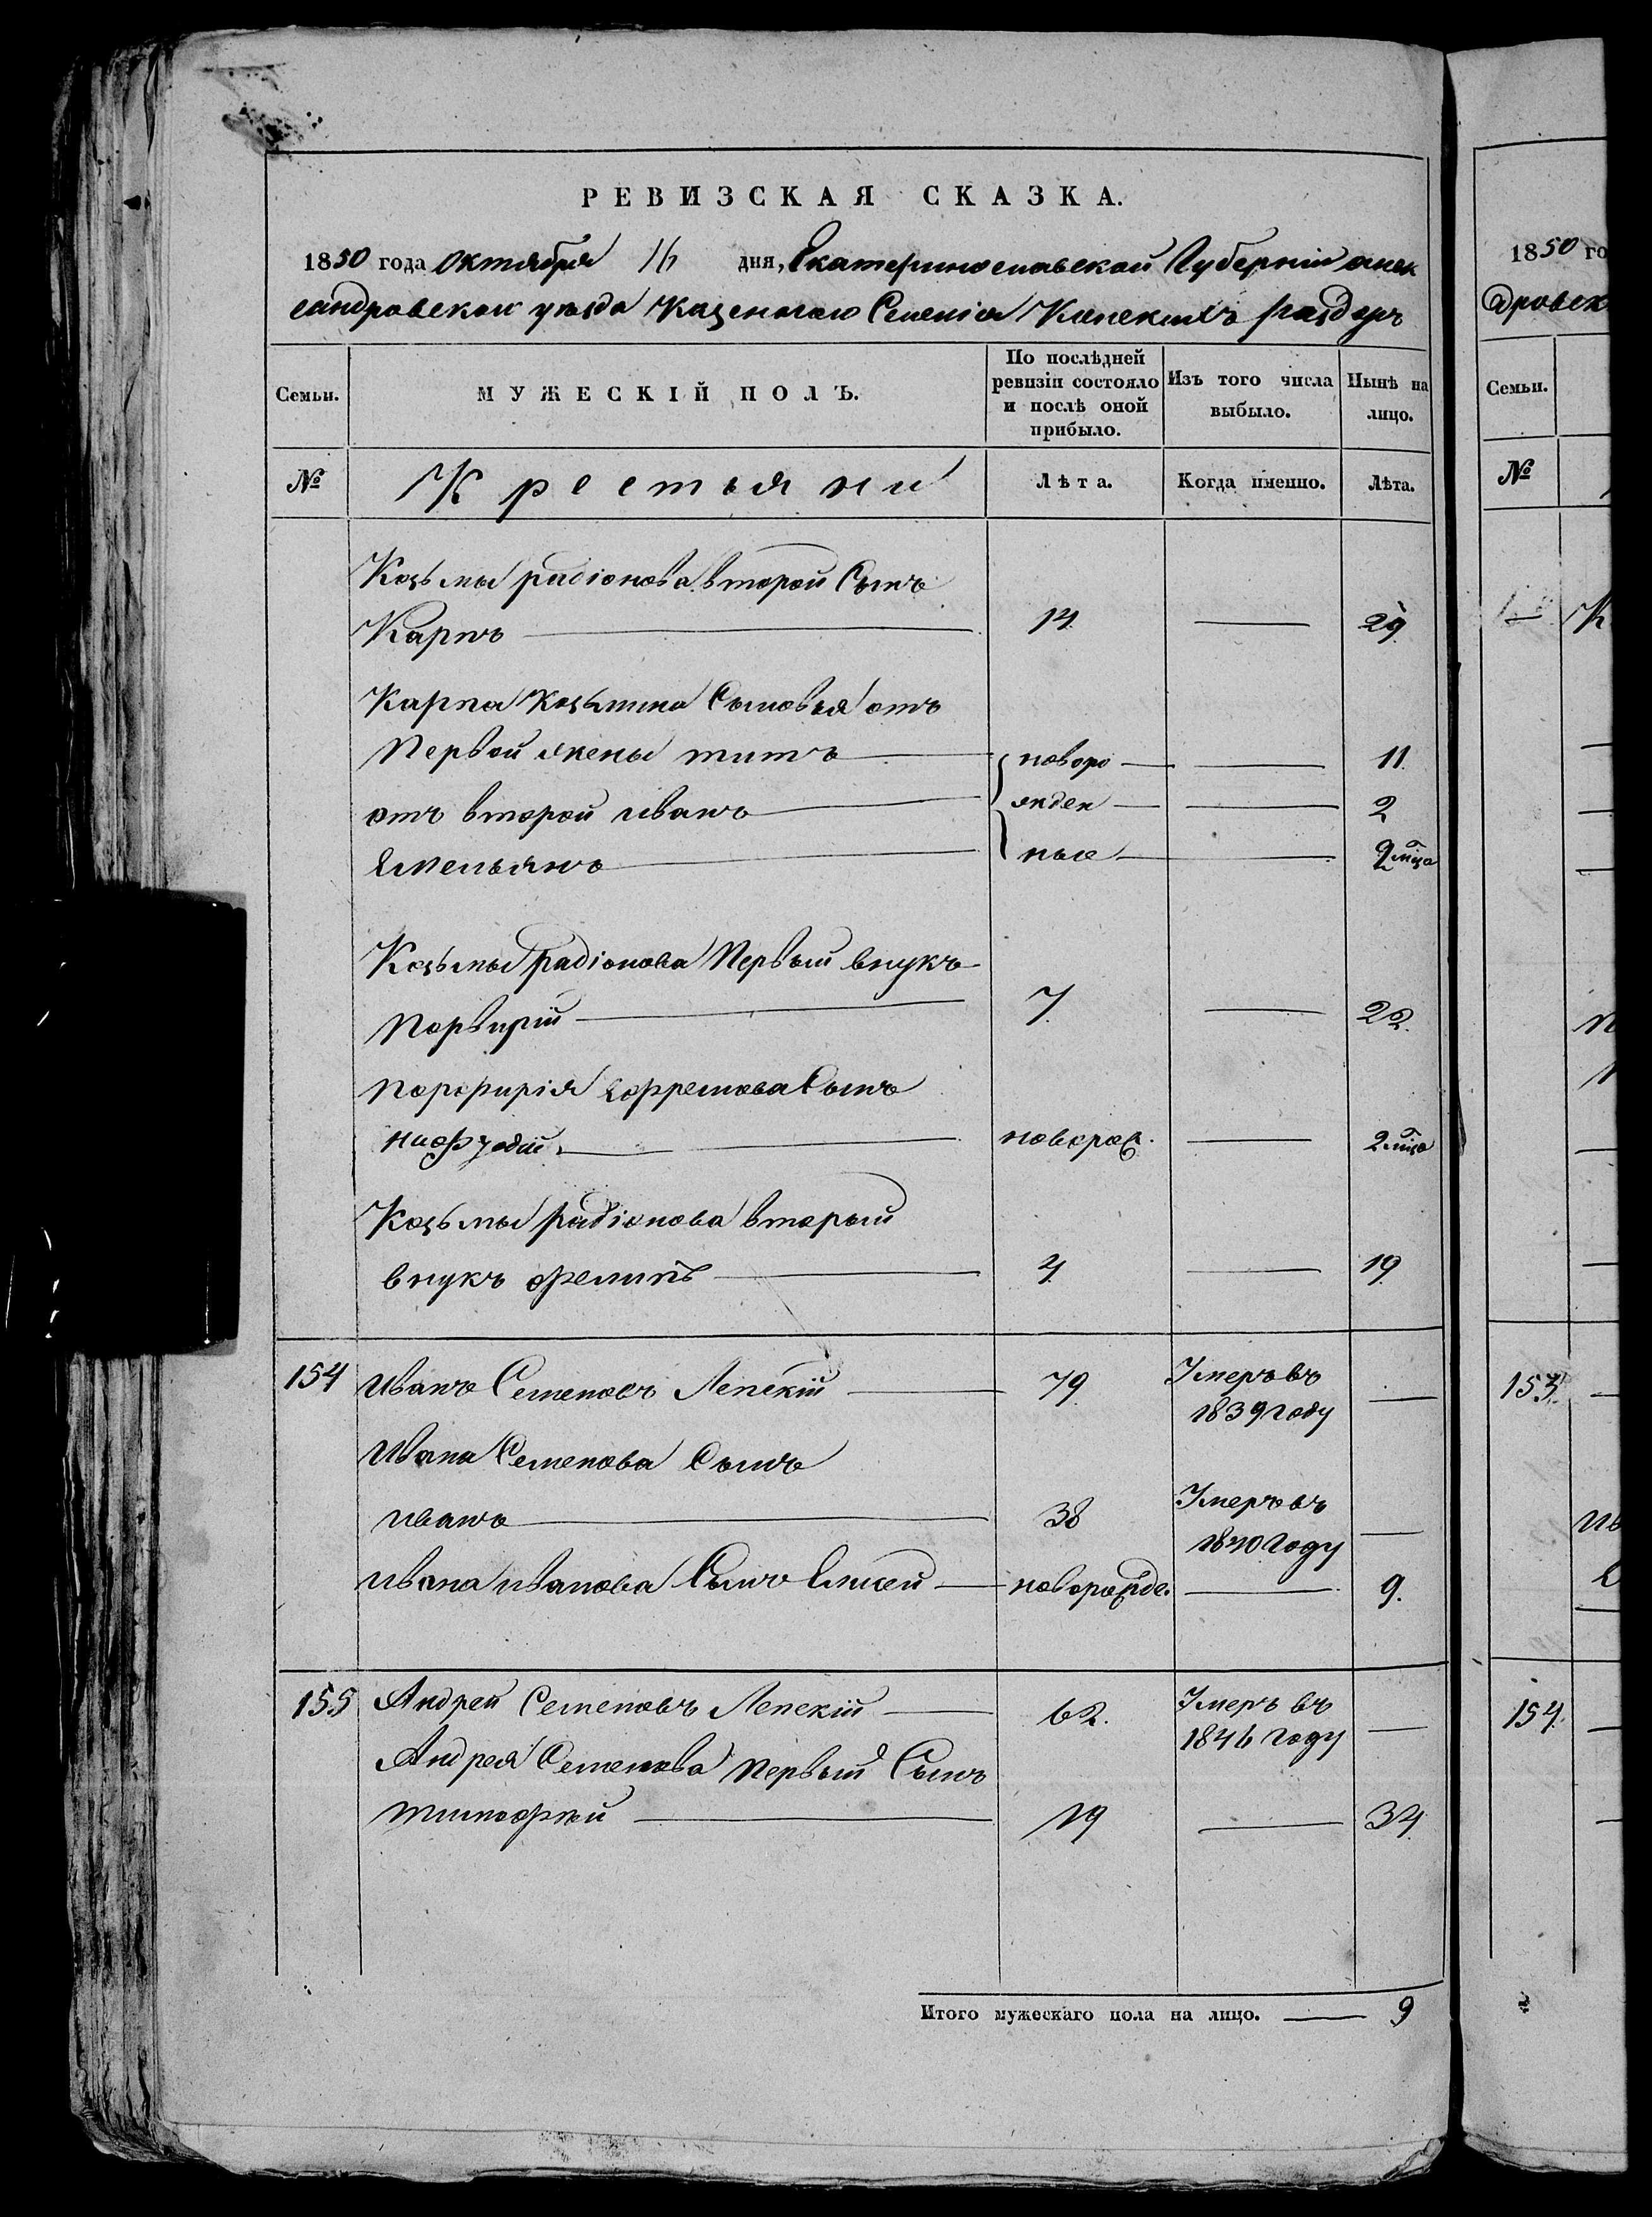 РЕВИЗСКАЯ СКАЗКА.
1850 года Октября 16 дня, Екатеринославской Губерніи алек
сандровскои уезда Казеннаго Селенія Конскихъ раздеръ
Семьи. МУЖЕСКІЙ ПОЛЪ. По послѣдней ревизіи состояло и послѣ оной прибыло. Изъ того числа выбыло. Нынѣ на лицо.
№ Крестьяни Лѣта. Когда именно. Лѣта.
Козьмы радіонова второй Сынъ
Карпъ 14. 29.
Карпа Козьмина Сыновья отъ
Первой жены титъ новоро 11.
отъ второй иванъ жден 2
Емельянъ ные 2 мца
Козьмы радіонова Первый внукъ
Порвирій 7. 22.
Порфирія Ефремова Сынъ
новорож. 2 мца
Козьмы радіонова вторый
внукъ филипъ 4. 19
154 Иванъ Семеновъ Лепскій 79. Умеръ въ
1839 году
Ивана Семенова Сынъ
иванъ 38 Умеръ въ
1840 году
Ивана иванова Сынъ Елисей новорожде. 9.
155 Андрей Семеновъ Лепскій 62. Умеръ въ
1846 году
Андрея Семенова Первый Сынъ
тимофѣй 19 34.
Итого мужескаго пола на лицо. 9
1850 го
дровск
Семьи.
№
К
153.
154.